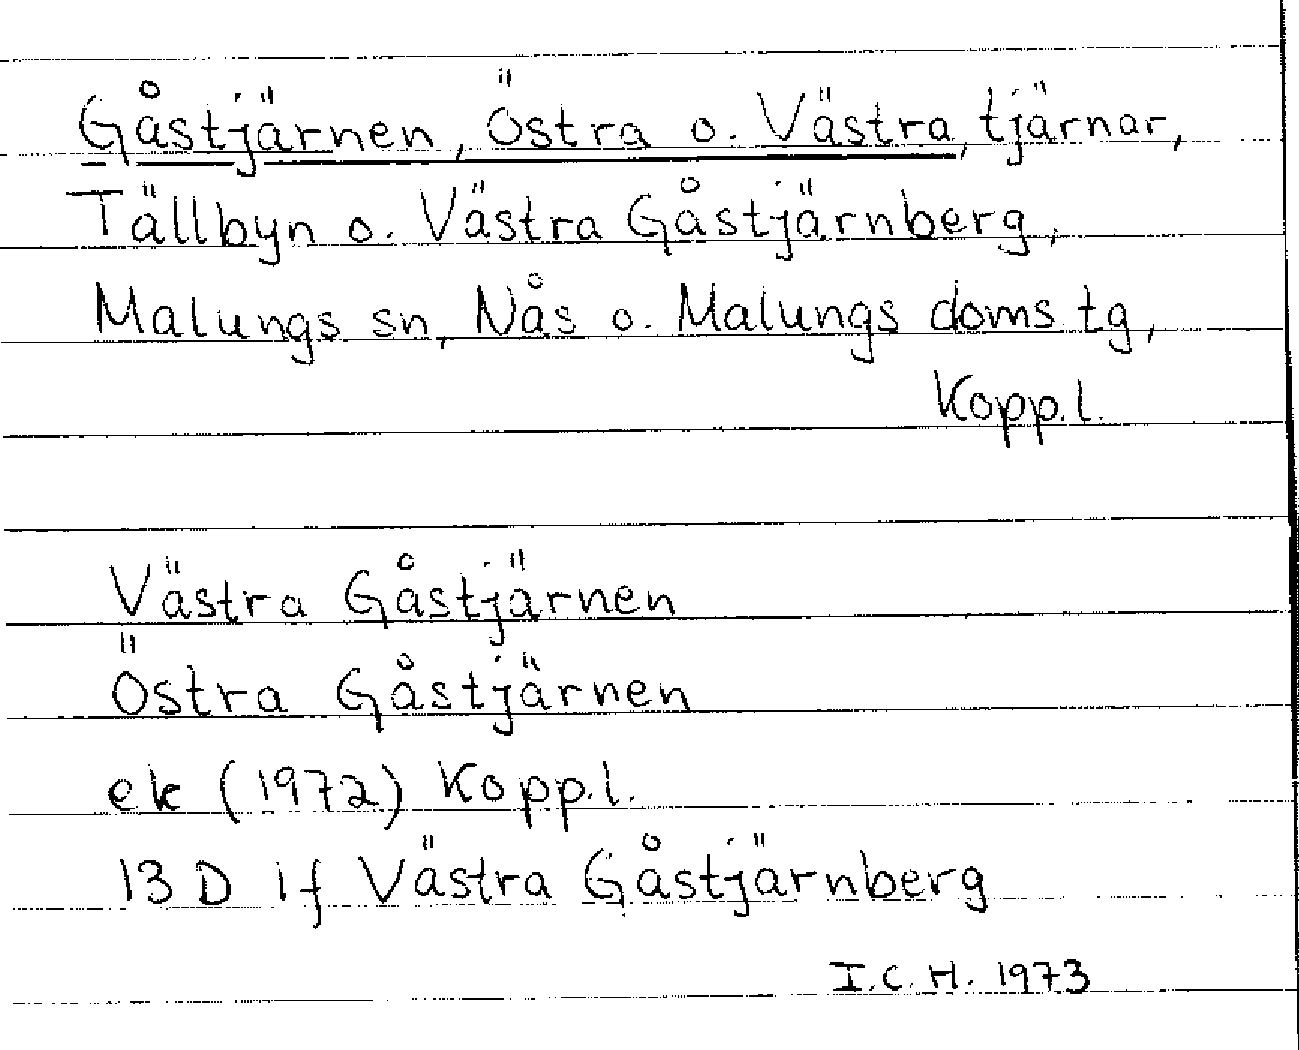 Gåstjärnen, Östra o. Västra, tjärnar,
Tällbyn o. Västra Gåstjärnberg,
Malungs sn, Nås o. Malungs doms tg,
Kopp.l.
Västra Gåstjärnen
Östra Gåstjärnen
ek (1972) Kopp.l.
13 D if Västra Gåstjärnberg
I.C.H. 1973